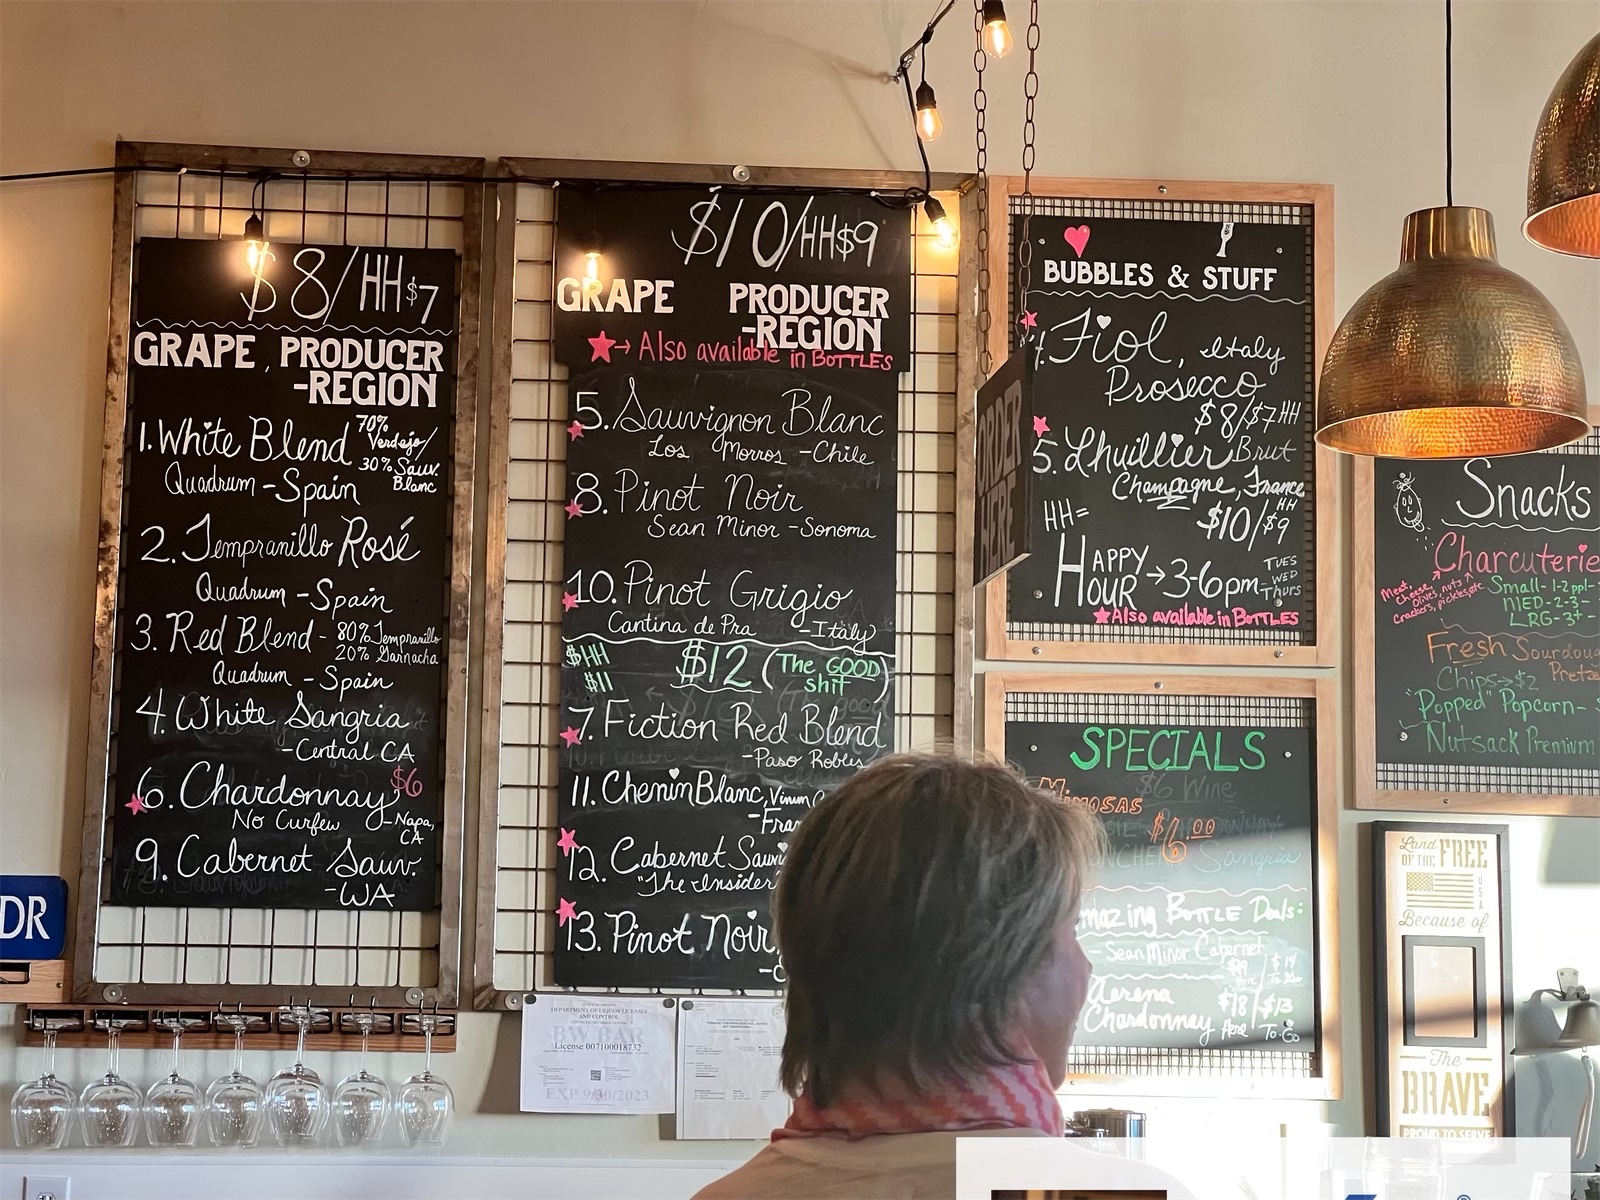 $8/HH$7
GRAPE, PRODUCER
-REGION
1. White Blend 70%
Verdejo/
30% Sauv.
Blanc
Quadrum - Spain
2. Tempranillo Rosé
Quadrum - Spain
3. Red Blend - 80% Tempranillo
20% Garnacha
Quadrum - Spain
4. White Sangria
- Central CA
$6
6. Chardonnay
No Curfew - Napa,
CA
9. Cabernet Sauv.
- WA
DR
$10/HH$9
GRAPE PRODUCER
-REGION
→ Also available in BOTTLES
5. Sauvignon Blanc
Los Morros - Chile
8. Pinot Noir
Sean Minor - Sonoma
10. Pinot Grigio
Cantina de Pra - Italy
$HH $12 (The GOOD
$11 shit)
7. Fiction Red Blend
- Paso Robles
11. Chenin Blanc, Vinum
- Fran
12. Cabernet Sauv
"The Insider"
13. Pinot Noir,
DEPARTMENT OF LIQUOR LICENSES
AND CONTROL
License 007100018732
EXP 9/30/2023
ORDER
HERE
BUBBLES & STUFF
Fiol, Italy
Prosecco
$8/$7 HH
5. Lhuillier Brut
Champagne, France
HH
HH= $10/$9
HAPPY
HOUR → 3-6pm - TUES
WED
THURS
Also available in BOTTLES
SPECIALS
$6 Wine
MIMOSAS
$6.00
Sangria
mazing BOTTLE Deals:
- Sean Minor Cabernet
Aerena $18/$13
Chardonnay Here To-Go
Snacks
Charcuterie
Meat,
Cheese,
olives, nuts,
crackers, pickles, etc
Small - 1-2 ppl -
MED - 2-3 -
LRG - 3+ -
Fresh Sourdoug
Pretze
Chips → $2
"Popped" Popcorn -
Nutsack Premium
Land
OF THE FREE
USA
Because of
The
BRAVE
PROUD TO SERVE